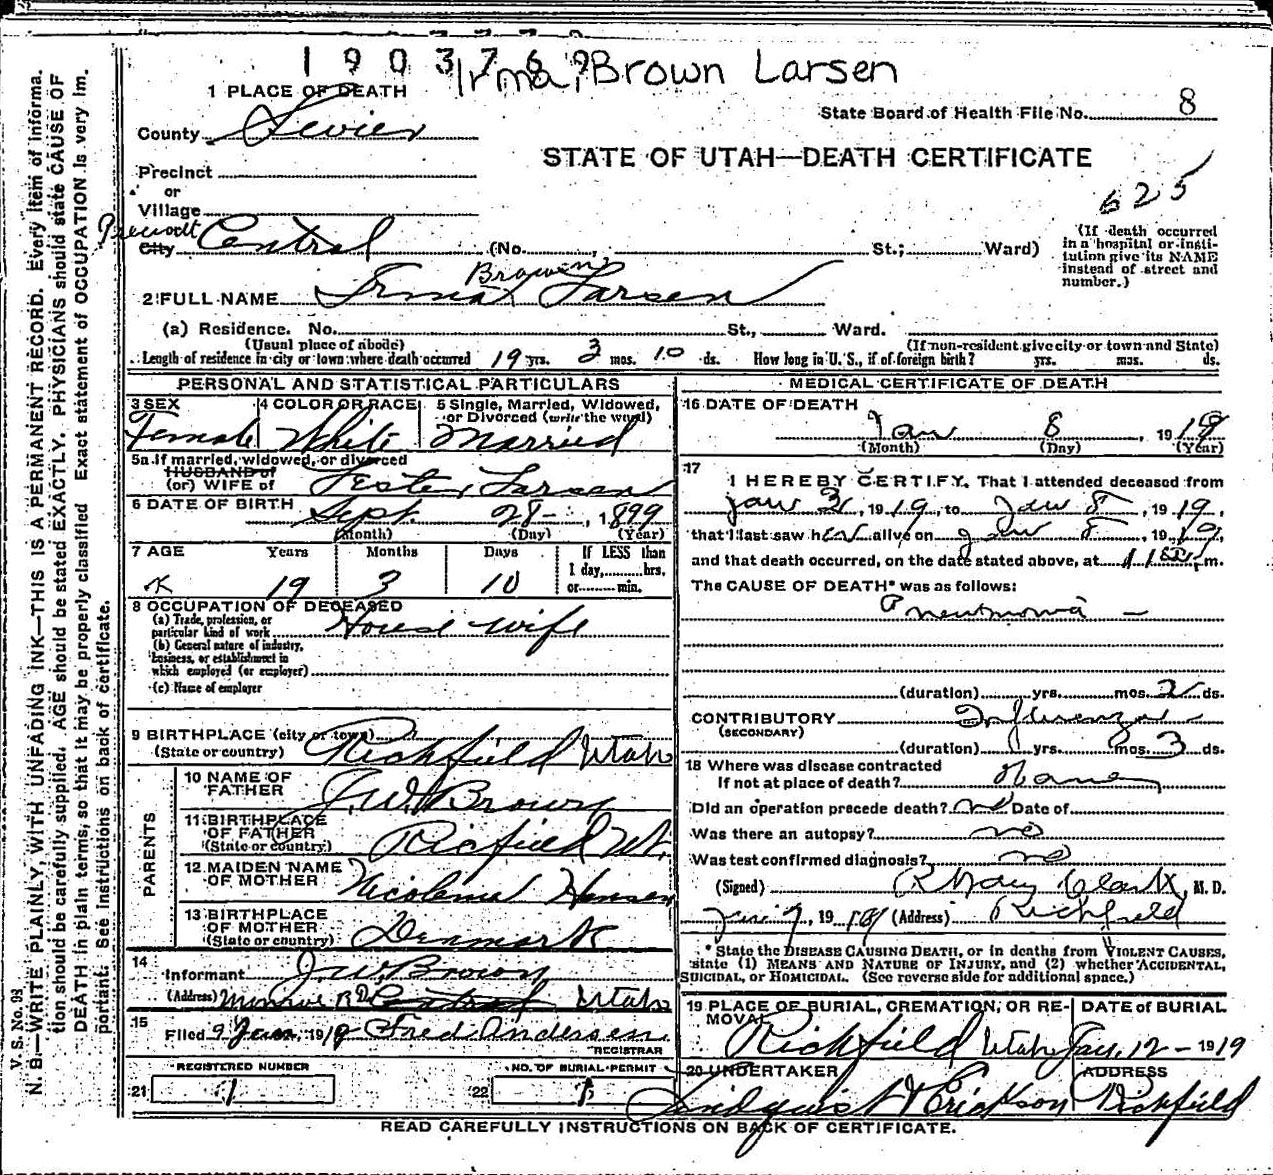 1903769
Irma, Brown Larsen
1 PLACE OF DEATH
State Board of Health File No. 8
County Sevier
STATE OF UTAH—DEATH CERTIFICATE
Precinct
or
625
Village
Precinct
City Central (No. St.; Ward)
(If death occurred in a hospital or institution give its NAME instead of street and number.)
Brown
2 FULL NAME Irma Larsen
(a) Residence. No. St., Ward.
(Usual place of abode) (If non-resident give city or town and State)
Length of residence in city or town where death occurred 19 yrs. 3 mos. 10 ds. How long in U. S., if of foreign birth? yrs. mos. ds.
PERSONAL AND STATISTICAL PARTICULARS
3 SEX 4 COLOR OR RACE 5 Single, Married, Widowed, or Divorced (write the word)
Female White Married
5a If married, widowed, or divorced
HUSBAND of
(or) WIFE of Lester Larsen
6 DATE OF BIRTH Sept. 28 - , 1899
(Month) (Day) (Year)
7 AGE Years Months Days If LESS than 1 day, hrs. or min.
19 3 10
8 OCCUPATION OF DECEASED
(a) Trade, profession, or particular kind of work House wife
(b) General nature of industry, business, or establishment in which employed (or employer)
(c) Name of employer
9 BIRTHPLACE (city or town) Richfield Utah
(State or country)
PARENTS
10 NAME OF FATHER J. W. Brown
11 BIRTHPLACE OF FATHER Ricfield Ut.
(State or country)
12 MAIDEN NAME OF MOTHER Nicolena Hansen
13 BIRTHPLACE OF MOTHER Denmark
(State or country)
14
Informant J. W. Brown
(Address) Monroe RD Central Utah
15
Filed 9 Jan, 1919 Fred Andersen
REGISTRAR
REGISTERED NUMBER NO. OF BURIAL PERMIT
21 1 22 1
MEDICAL CERTIFICATE OF DEATH
16 DATE OF DEATH
Jan 8 , 1919
(Month) (Day) (Year)
17
I HEREBY CERTIFY, That I attended deceased from
Jan 3, 1919, to Jan 8, 1919,
that I last saw her alive on Jan 8, 1919,
and that death occurred, on the date stated above, at m.
The CAUSE OF DEATH* was as follows:
Pneumonia -
(duration) yrs. mos. 2 ds.
CONTRIBUTORY Influenza -
(SECONDARY)
(duration) yrs. mos. 3 ds.
18 Where was disease contracted
If not at place of death?
Did an operation precede death? no Date of
Was there an autopsy? no
Was test confirmed diagnosis? no
(Signed) Clark, M. D.
Jan 9, 1919 (Address) Richfield
* State the DISEASE CAUSING DEATH, or in deaths from VIOLENT CAUSES,
state (1) MEANS AND NATURE OF INJURY, and (2) whether ACCIDENTAL,
SUICIDAL, or HOMICIDAL. (See reverse side for additional space.)
19 PLACE OF BURIAL, CREMATION, OR REMOVAL DATE of BURIAL
Richfield Utah Jan. 12 - 1919
20 UNDERTAKER ADDRESS
Lindquist & Erickson Richfield
READ CAREFULLY INSTRUCTIONS ON BACK OF CERTIFICATE.
V. S. No. 98
N. B.—WRITE PLAINLY, WITH UNFADING INK—THIS IS A PERMANENT RECORD. Every item of informa-
tion should be carefully supplied. AGE should be stated EXACTLY. PHYSICIANS should state CAUSE OF
DEATH in plain terms, so that it may be properly classified Exact statement of OCCUPATION is very im-
portant. See instructions on back of certificate.